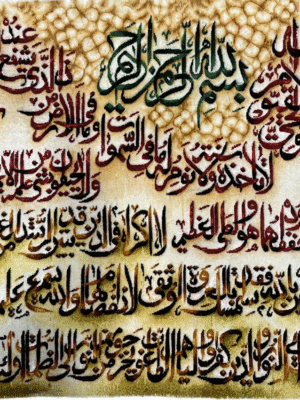 بسم الله الرحمن الرحيم
الحي
القيوم
لا تأخذه سنة ولا نوم له ما في السموات
وما في الارض من
ذا الذي يشفع
عنده
ولا يحيطون بشيء من علمه
حفظهما وهو العلي العظيم لا اكراه في الدين قد تبين الرشد من الغي
بالله فقد استمسك بالعروة الوثقى لا انفصام لها والله سميع عليم
النور والذين كفروا اولياؤهم الطاغوت يخرجونهم من النور الى الظلمات اولئك